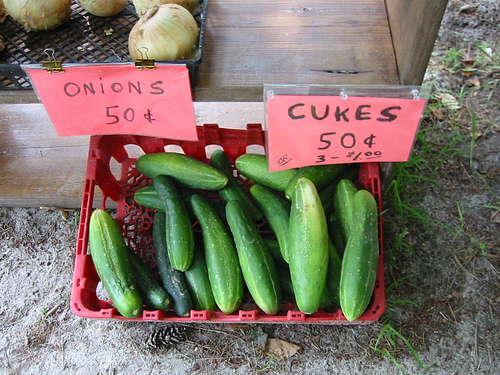 ONIONS
50¢
CUKES
50¢
OR
3 - $1.00